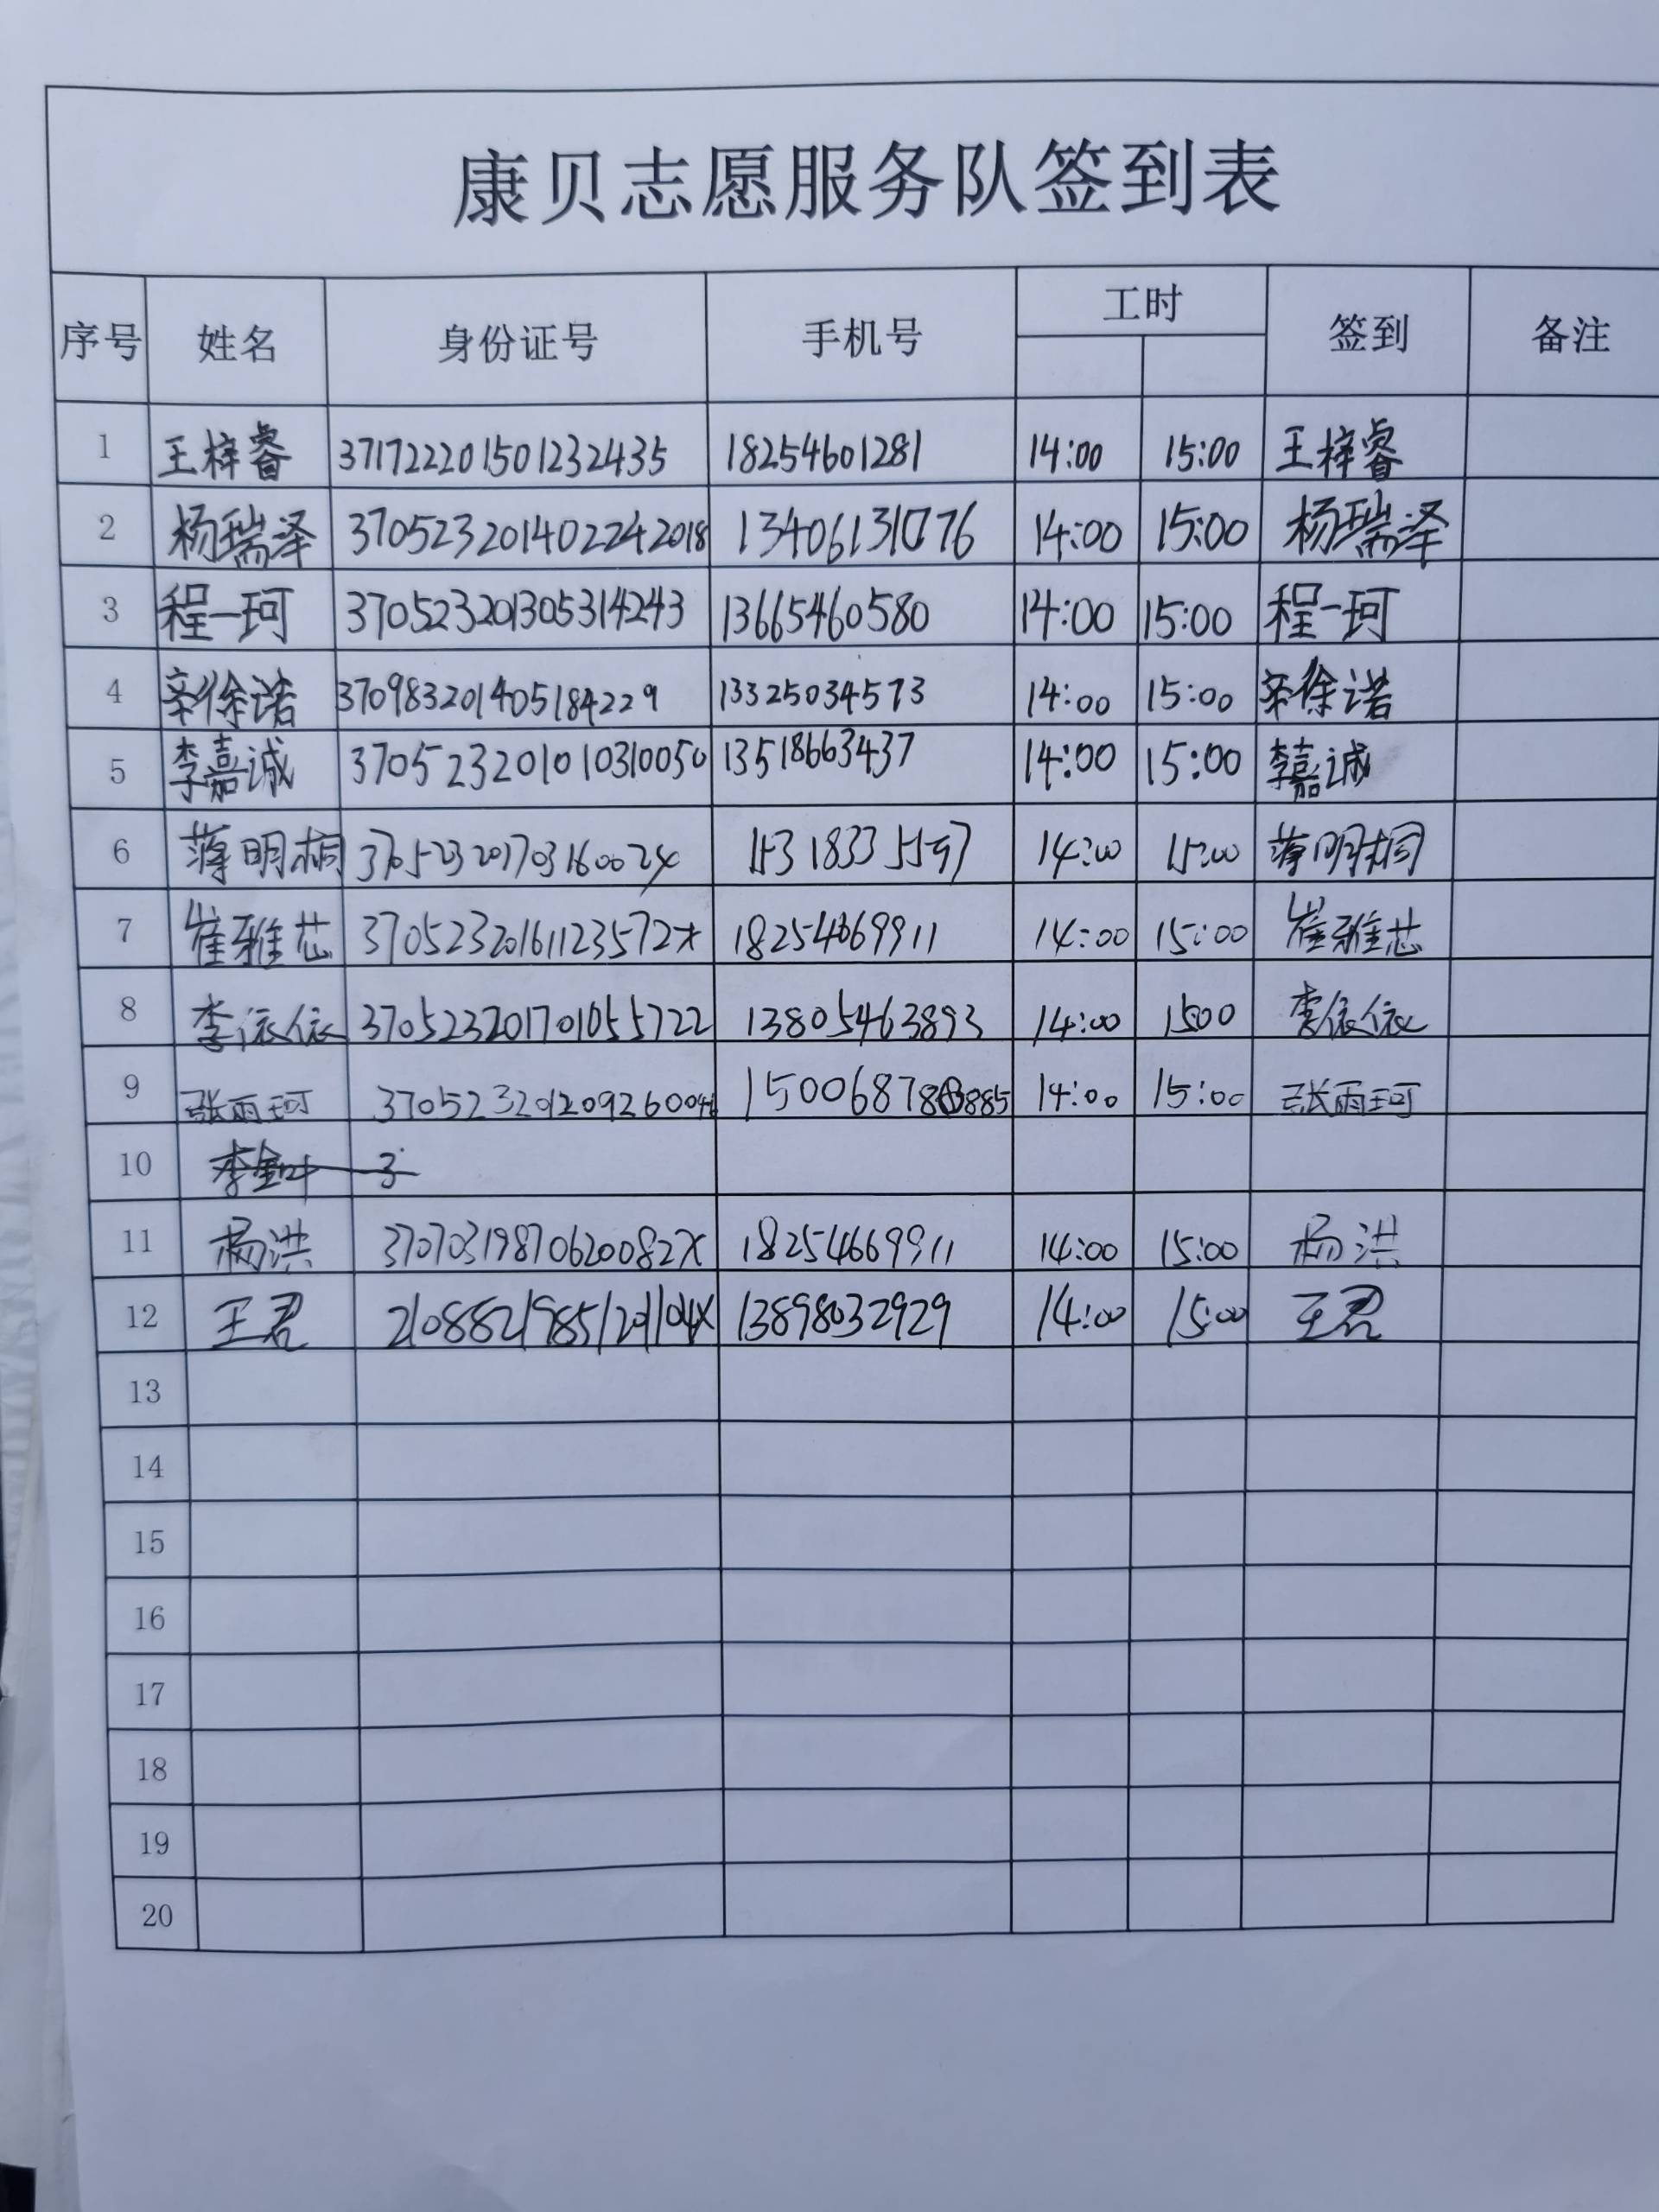 康贝志愿服务队签到表
序号 姓名 身份证号 手机号 工时 签到 备注
1 王梓睿 371722201501232435 18254601281 14:00 15:00 王梓睿
2 杨瑞泽 370523201402242018 13406131076 14:00 15:00 杨瑞泽
3 程一珂 370523201305314243 13665460580 14:00 15:00 程一珂
4 辛徐诺 370983201405184229 13325034573 14:00 15:00 辛徐诺
5 李嘉诚 370523201010310050 13518663437 14:00 15:00 李嘉诚
6 明桐 370523201703160024 14:00 15:00 明桐
7 崔雅芯 37052320161123572x 18254669911 14:00 15:00 崔雅芯
8 李依依 370523201701055722 13805463893 14:00 1500 李依依
9 张雨珂 370523201209260046 14:00 15:00 张雨珂
10
11 杨洪 37070319870620082X 18254669911 14:00 15:00 杨洪
12 王君 21088219851201104X 13898032929 14:00 15:00 王君
13
14
15
16
17
18
19
20